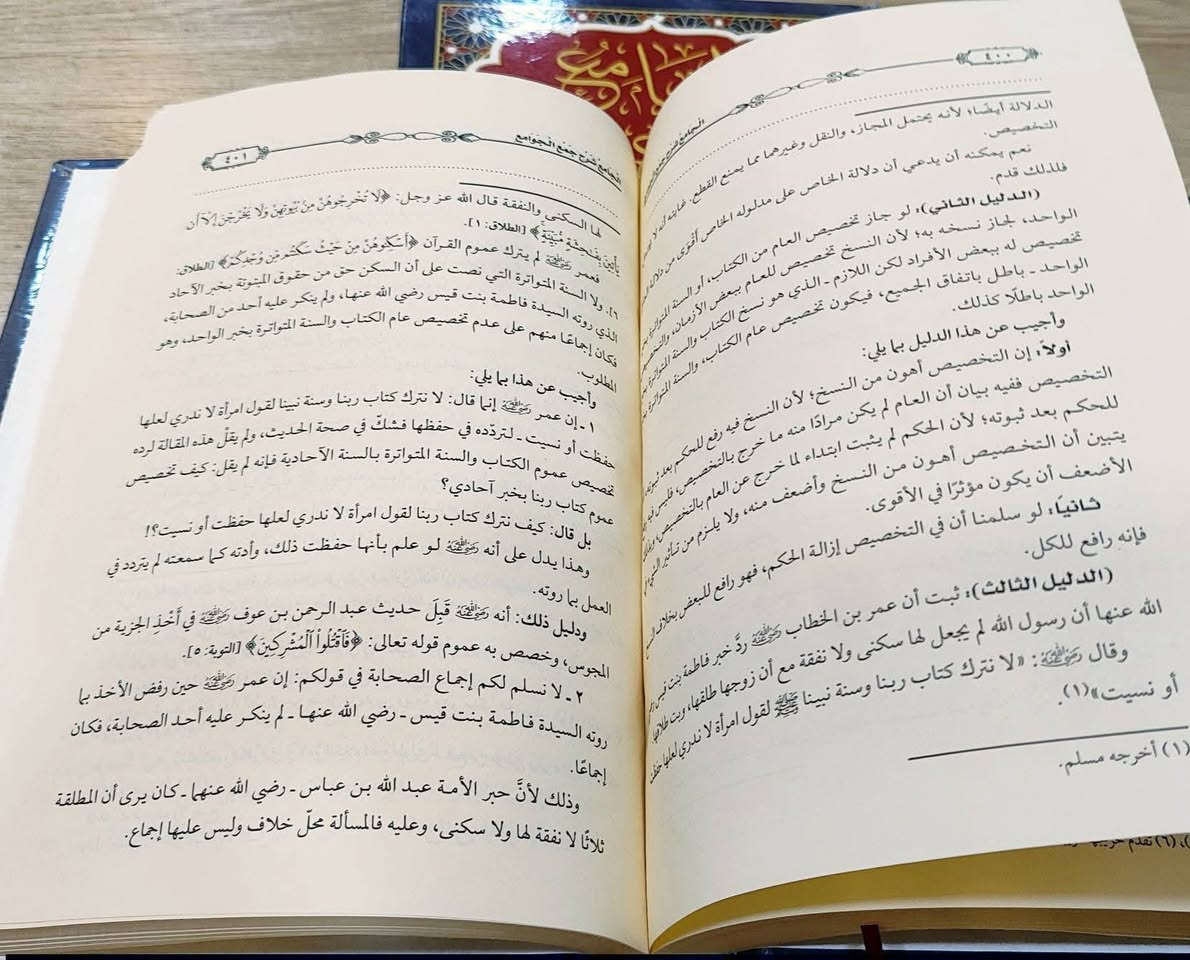 الجامع
٤٠٠
الجامع شرح جمع الجوامع
الدلالة أيضًا؛ لأنه يحتمل المجاز، والنقل وغيرهما مما يمنع القطع. غايته أنه لا
التخصيص.
نعم يمكنه أن يدعي أن دلالة الخاص على مدلوله الخاص أقوى من دلالة
فلذلك قدم.
(الدليل الثاني): لو جاز تخصيص العام من الكتاب، أو السنة المتواترة
الواحد، لجاز نسخه به؛ لأن النسخ تخصيص للعام ببعض الأزمان،
تخصيص له ببعض الأفراد لكن اللازم ـ الذي هو نسخ الكتاب والسنة المتواترة
الواحد ـ باطل باتفاق الجميع، فيكون تخصيص عام الكتاب، والسنة المتواترة
الواحد باطلًا كذلك.
وأجيب عن هذا الدليل بما يلي:
أولًا: إن التخصيص أهون من النسخ؛ لأن النسخ فيه رفع للحكم بعد ثبوته،
التخصيص ففيه بيان أن العام لم يكن مرادًا منه ما خرج بالتخصيص، فليس فيه
للحكم بعد ثبوته؛ لأن الحكم لم يثبت ابتداء لما خرج عن العام بالتخصيص،
يتبين أن التخصيص أهون من النسخ وأضعف منه، ولا يلزم من تأثير الشيء
الأضعف أن يكون مؤثرًا في الأقوى.
ثانيًا: لو سلمنا أن في التخصيص إزالة الحكم، فهو رافع للبعض بخلاف
فإنه رافع للكل.
(الدليل الثالث): ثبت أن عمر بن الخطاب رضي الله عنه ردَّ خبر فاطمة بنت قيس
الله عنها أن رسول الله لم يجعل لها سكنى ولا نفقة مع أن زوجها طلقها، وبت طلاقها،
وقال رضي الله عنه: «لا نترك كتاب ربنا وسنة نبينا ﷺ لقول امرأة لا ندري لعلها حفظت
أو نسيت»(١).
(١) أخرجه مسلم.
٤٠١
الجامع شرح جمع الجوامع
لها السكنى والنفقة قال الله عز وجل: ﴿لَا تُخْرِجُوهُنَّ مِنْ بُيُوتِهِنَّ وَلَا يَخْرُجْنَ إِلَّا أَن
يَأْتِينَ بِفَاحِشَةٍ مُّبَيِّنَةٍ﴾ [الطلاق: ١].
فعمر رضي الله عنه لم يترك عموم القرآن ﴿أَسْكِنُوهُنَّ مِنْ حَيْثُ سَكَنتُم مِّن وُجْدِكُمْ﴾ [الطلاق:
٦]. ولا السنة المتواترة التي نصت على أن السكن حق من حقوق المبتوتة بخبر الآحاد
الذي روته السيدة فاطمة بنت قيس رضي الله عنها، ولم ينكر عليه أحد من الصحابة،
فكان إجماعًا منهم على عدم تخصيص عام الكتاب والسنة المتواترة بخبر الواحد، وهو
المطلوب.
وأجيب عن هذا بما يلي:
١ ـ إن عمر رضي الله عنه إنما قال: لا نترك كتاب ربنا وسنة نبينا لقول امرأة لا ندري لعلها
حفظت أو نسيت ـ لتردّده في حفظها فشكّ في صحة الحديث، ولم يقلْ هذه المقالة لرده
تخصيص عموم الكتاب والسنة المتواترة بالسنة الآحادية فإنه لم يقل: كيف تخصيص
عموم كتاب ربنا بخبر آحادي؟
بل قال: كيف نترك كتاب ربنا لقول امرأة لا ندري لعلها حفظت أو نسيت؟!
وهذا يدل على أنه رضي الله عنه لو علم بأنها حفظت ذلك، وأدته كما سمعته لم يتردد في
العمل بما روته.
ودليل ذلك: أنه رضي الله عنه قَبِلَ حديث عبد الرحمن بن عوف رضي الله عنه في أَخْذِ الجزية من
المجوس، وخصص به عموم قوله تعالى: ﴿فَاقْتُلُوا الْمُشْرِكِينَ﴾ [التوبة: ٥].
٢ ـ لا نسلم لكم إجماع الصحابة في قولكم: إن عمر رضي الله عنه حين رفض الأخذ بما
روته السيدة فاطمة بنت قيس ـ رضي الله عنها ـ لم ينكر عليه أحد الصحابة، فكان
إجماعًا.
وذلك لأنَّ حبر الأمة عبد الله بن عباس ـ رضي الله عنهما ـ كان يرى أن المطلقة
ثلاثًا لا نفقة لها ولا سكنى، وعليه فالمسألة محلّ خلاف وليس عليها إجماع.